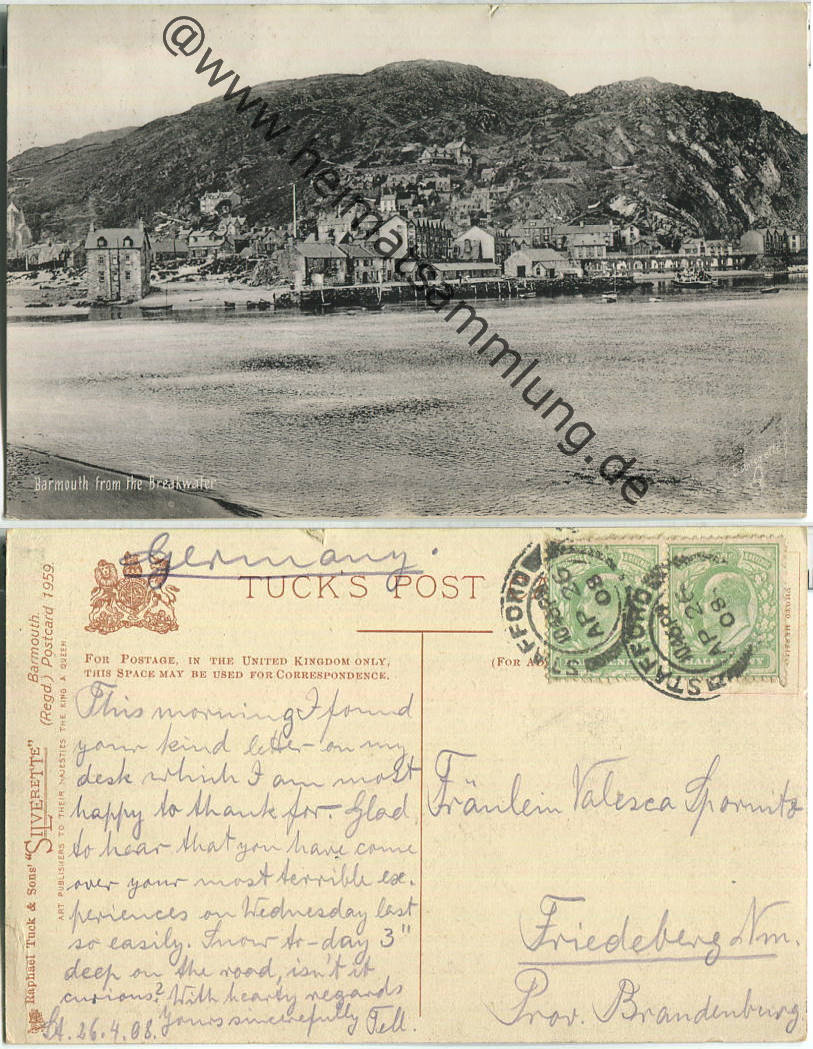 @www.heimatsammlung.de
Barmouth from the Breakwater
Silverette
Germany.
TUCK'S POST
FOR POSTAGE, IN THE UNITED KINGDOM ONLY,
THIS SPACE MAY BE USED FOR CORRESPONDENCE.
(FOR AD
Raphael Tuck & Sons' "SILVERETTE" Barmouth.
(Regd.) Postcard 1959.
ART PUBLISHERS TO THEIR MAJESTIES THE KING & QUEEN
STAFFORD
10.45PM
AP 26
08
STAFFORD
10.45PM
AP 26
08
HALFPENNY
This morning I found
your kind letter on my
desk which I am most
happy to thank for. Glad
to hear that you have come
over your most terrible ex-
periences on Wednesday last
so easily. Snow to-day 3"
deep on the road, isn't it
curious? With hearty regards
St. 26.4.08. Yours sincerefully Tell.
Fräulein Valesca Spornitz
Friedeberg Nm.
Prov. Brandenburg